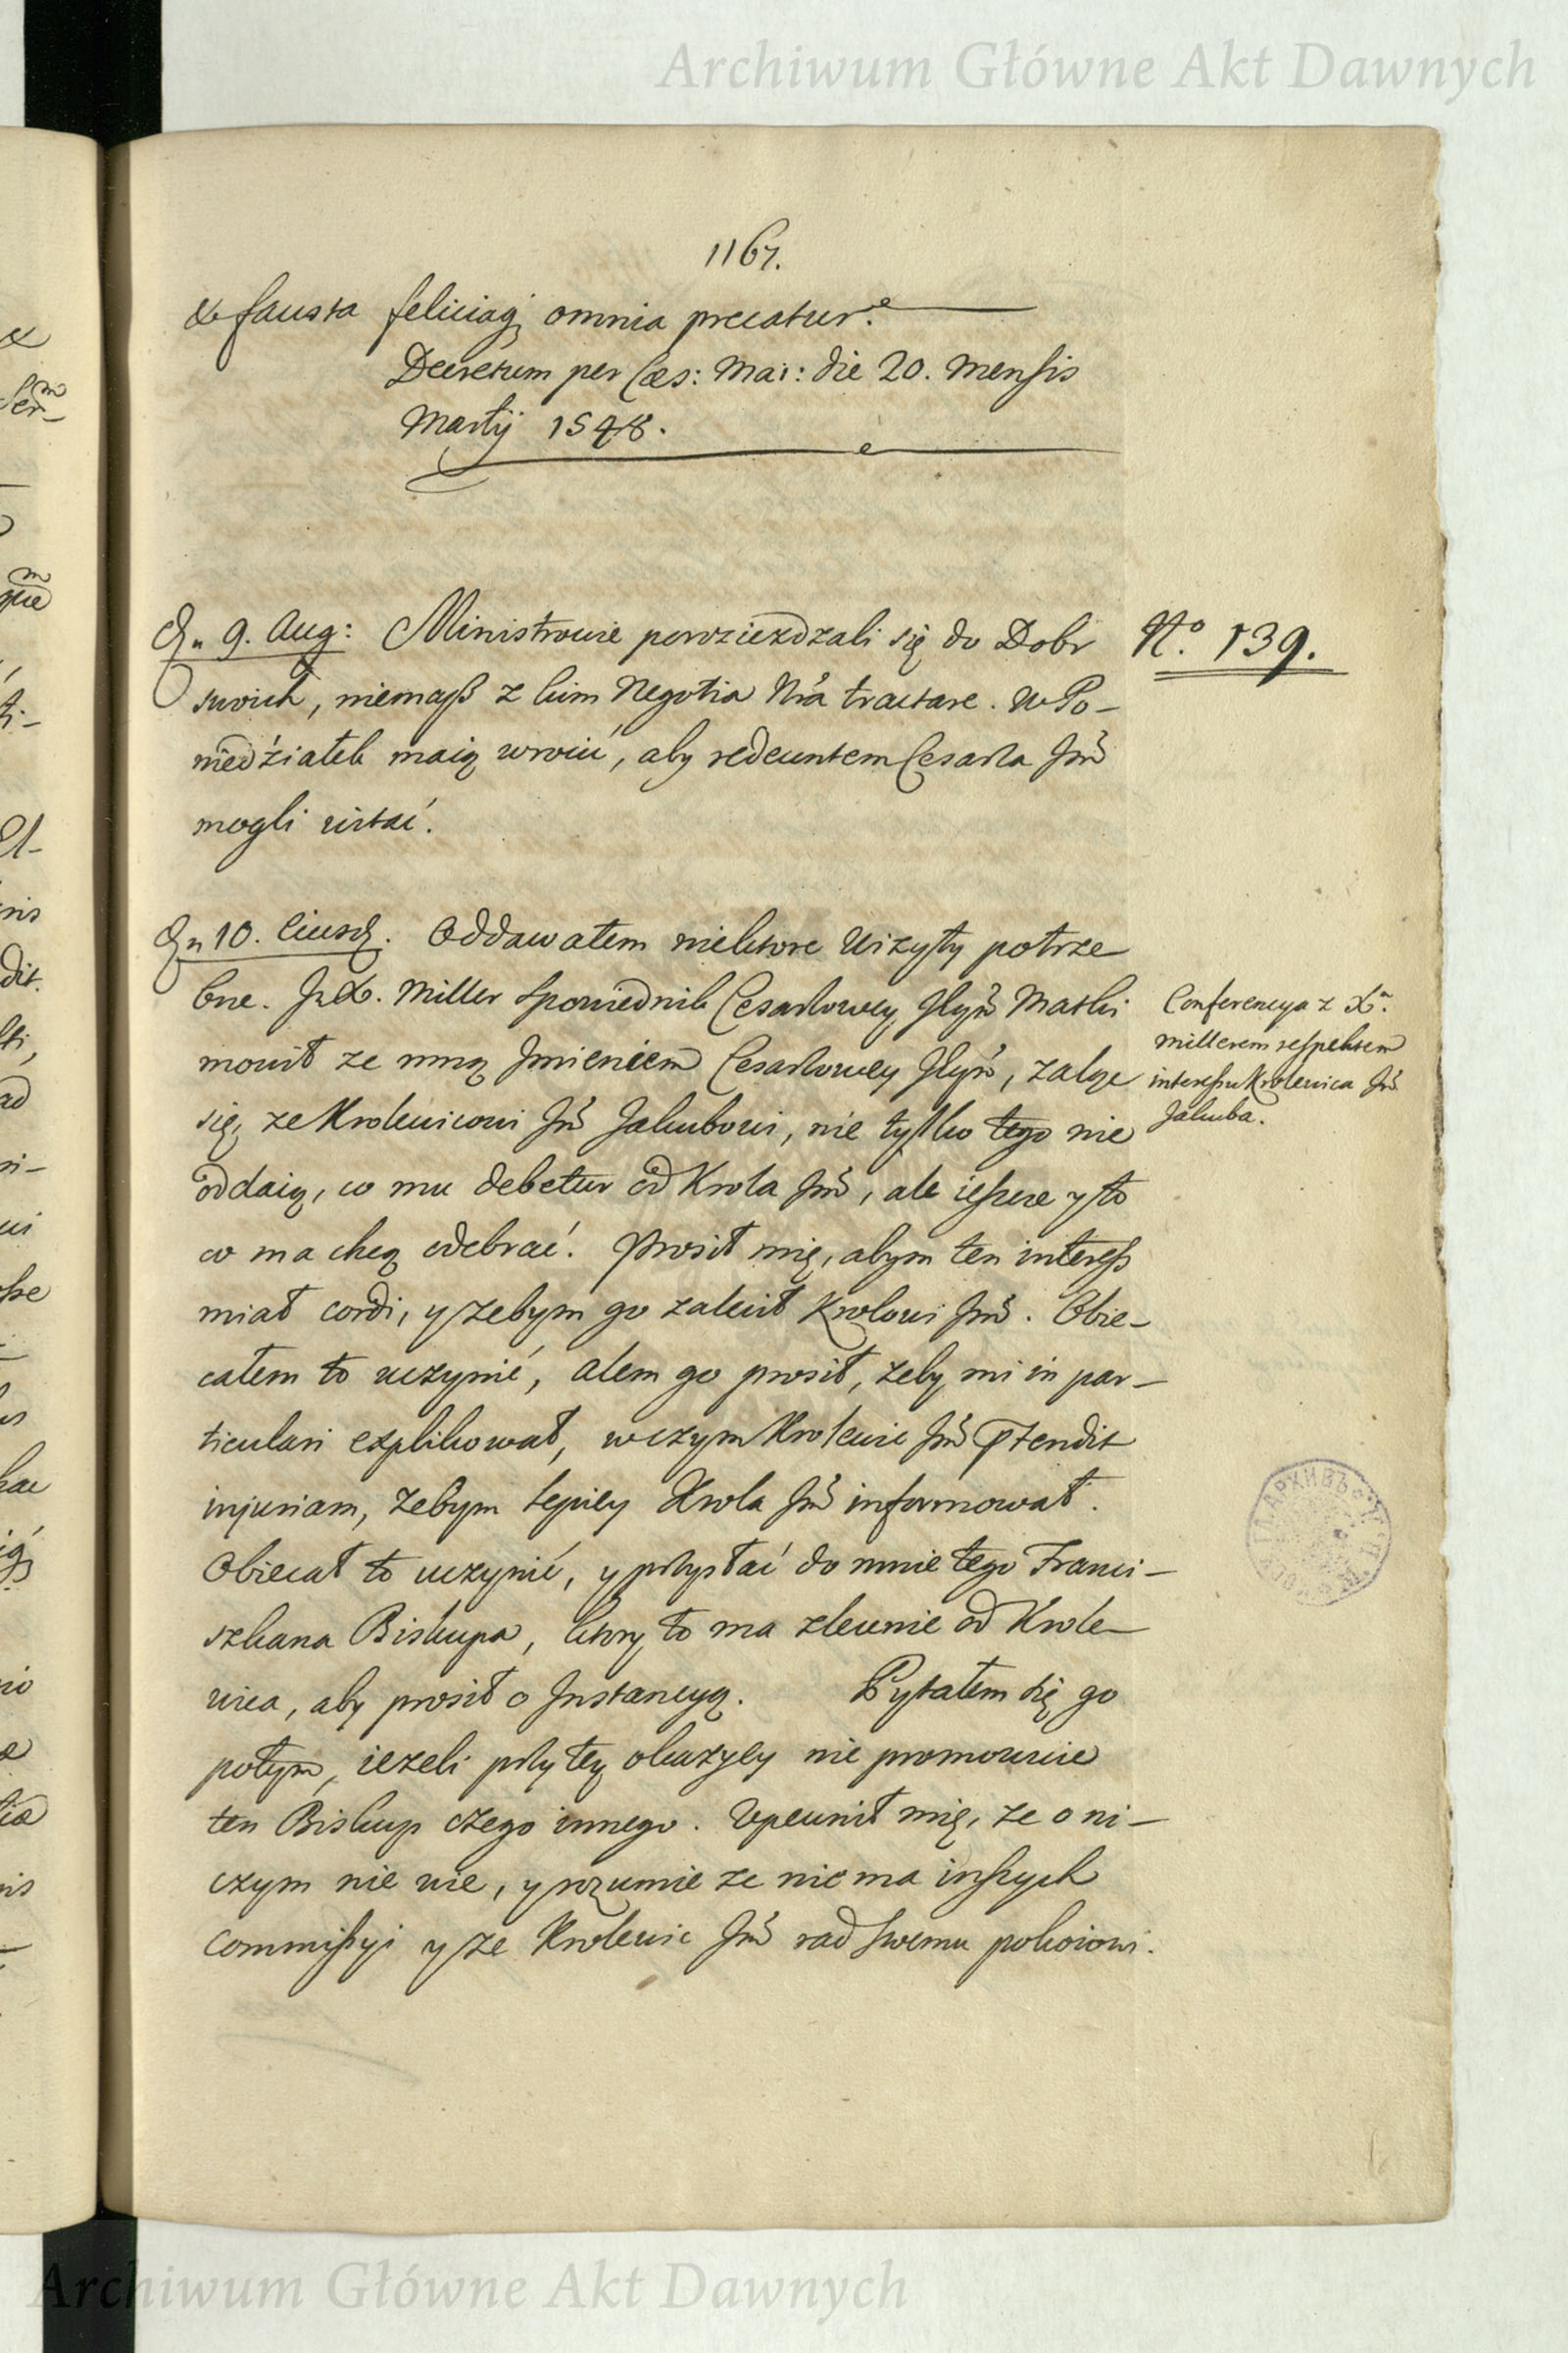 Archiwum Główne Akt Dawnych
1167.
& fausta feliciaq; omnia precatur.
Decretum per Cæs: Mai: die 20. Mensis
Martij 1548.
Dn 9. Aug: Ministrowie porozieżdzali się do Dobr
swoich, niemasz z kim Negotia Nrã tractare. W Po-
niedźiałek maią wroćić, aby redeuntem Cesarza Jm̃
mogli witać.
N.º 139.
Dn 10. Eiusd. Oddawałem niektore Wizyty potrze
bne. JxX. Miller Spowiednik Cesarzowey Jeym̃ Matki
mowił ze mną Jmieniem Cesarzowey Jeym̃, żaląc
się, ze Krolewicowi Jm̃ Jakubowi, nie tylko tego nie
oddaią, co mu debetur od Krola Jm̃, ale ieszcze y to
co ma chcą odebrać. Prosił mię, abym ten interess
miał cordi, y zebym go zalecił Krolowi Jm̃. Obie-
całem to uczynić, alem go prosił, zeby mi in par-
ticulari explikował, w czym Krolewic Jm̃ p̃tendit
injuriam, zebym lepiey Krola Jm̃ informował.
Obiecał to uczynić, y przysłać do mnie tego Franci-
szkana Biskupa, ktory to ma zlecenie od Krole-
wica, aby prosił o Jnstancyą. Pytałem się go
potym, iezeli przy tey okazyey nie promowuie
ten Biskup czego innego. Upewnił mię, ze o ni-
czym nie wie, y rozumie ze nie ma inszych
Commissyi y ze Krolewic Jm̃ rad swemu pokoiowi.
Conferencya z Xm
Millerem respektem
interessu Krolewica Jm̃
Jakuba.
Archiwum Główne Akt Dawnych